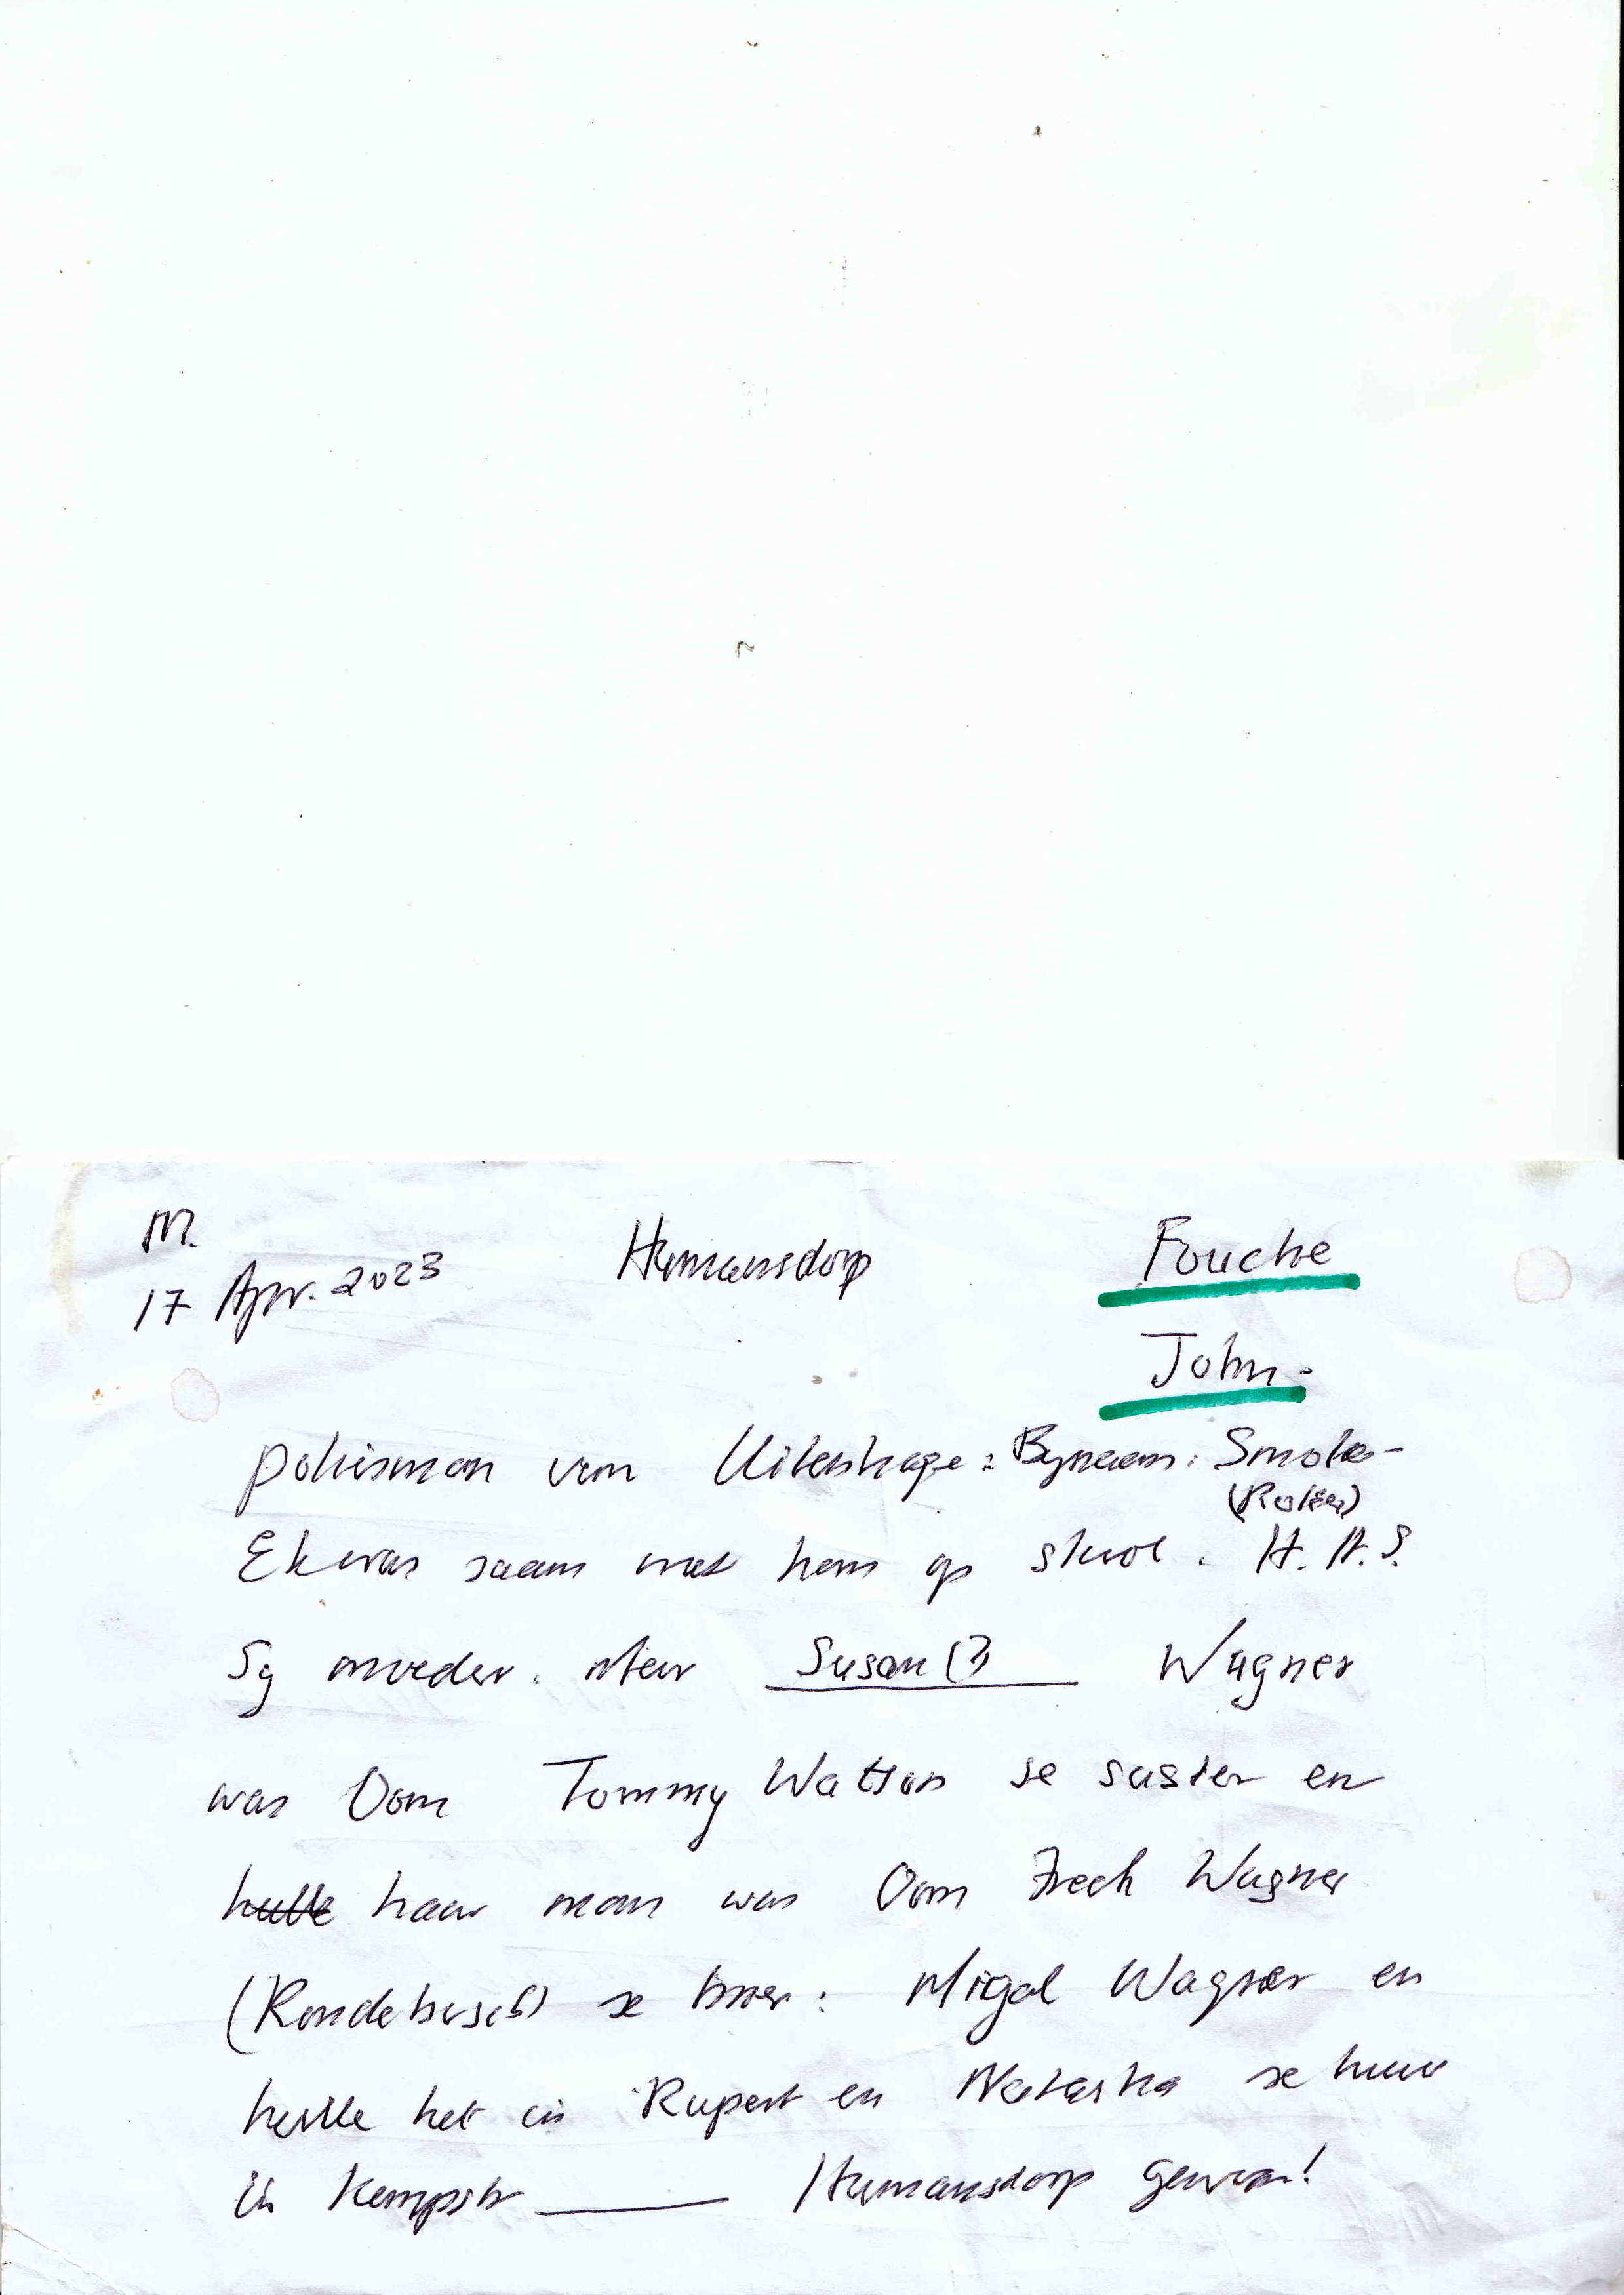 M.
17 Apr. 2023 Humansdorp Fouche
John.
polisman van Uitenhage: Bynaam: Smoke-
(Roker)
Ek was saam met hom op skool. H.H.S.
Sy moeder. Mev Susan (?) Wagner
was Oom Tommy Watson se suster en
hulle haar man was Oom Freek Wagner
(Rondebosch) se broer: Migal Wagner en
hulle het in Rupert en Natasha se huis
in Kempstr Humansdorp gewoon!